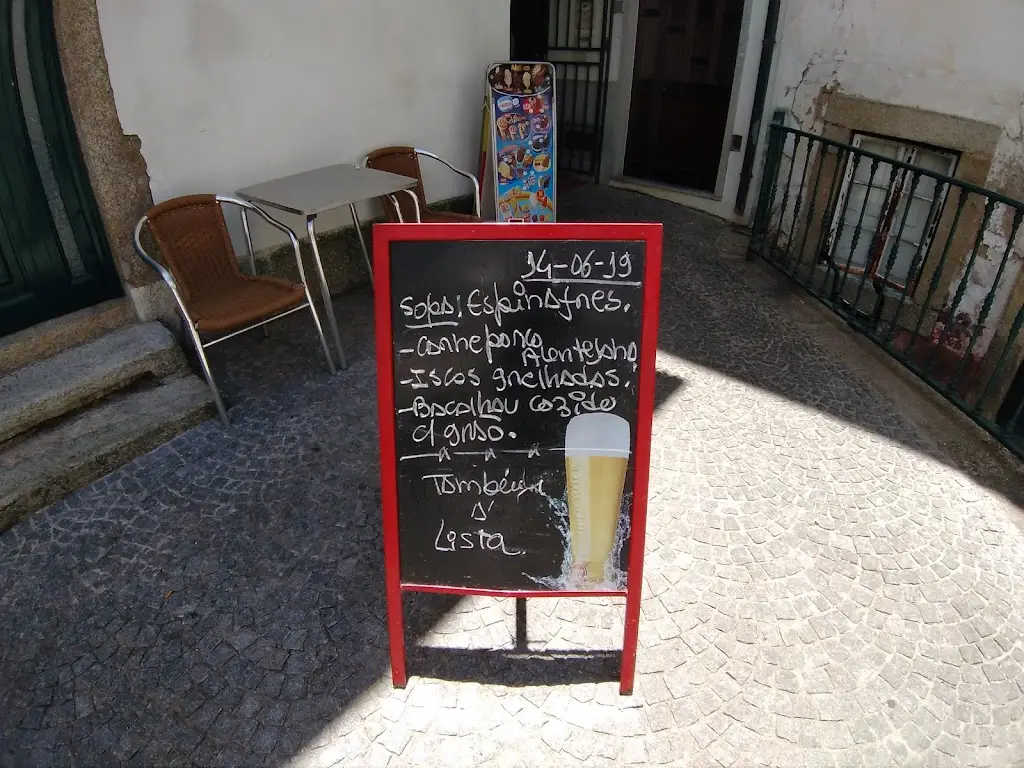 14-06-19
Sopa: Espinafres.
-Carne porco
Alentejana
-Iscas grelhadas.
-Bacalhau cozido
c/ grão.
Também há
à
Lista.